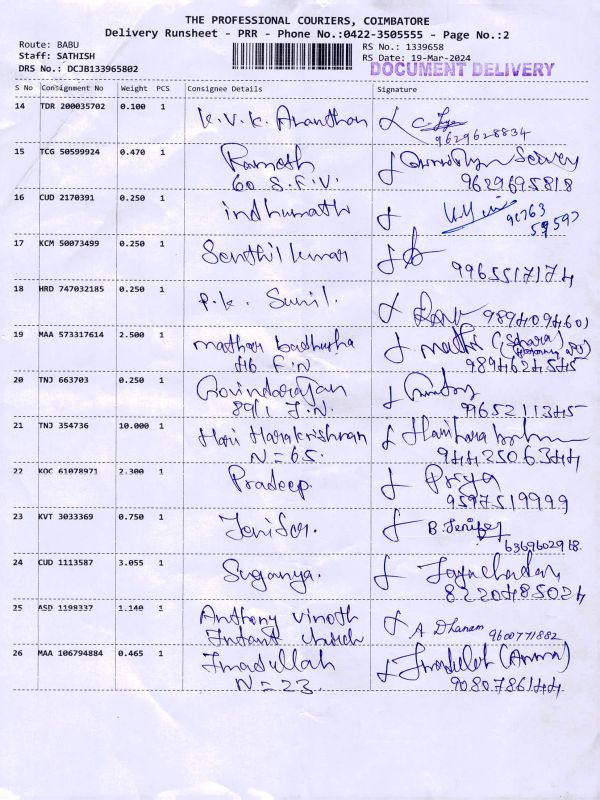 THE PROFESSIONAL COURIERS, COIMBATORE
Delivery Runsheet - PRR - Phone No.:0422-3505555 - Page No.:2
Route: BABU
RS No.: 1339658
Staff: SATHISH
RS Date: 19-Mar-2024
DRS No.: DCJB133965802
DOCUMENT DELIVERY
S No Consignment No Weight PCS Consignee Details Signature
14 TDR 200035702 0.100 1 K.V.K. Ananthan
9629628834
15 TCG 50599924 0.470 1 Ramnath
60 S.F.V. 9629695818
16 CUD 2170391 0.250 1 indhumathi
17 KCM 50073499 0.250 1 Senthil kumar
9965517174
18 HRD 747032185 0.250 1 P.K. Sunil.
9894094601
19 MAA 573317614 2.500 1 mathan badhusha
46 F.N 9894624545
20 TNJ 663703 0.250 1 Govindarajan
89/1 J.N. 9965211345
21 TNJ 354736 10.000 1 Hari Harakrishnan
N=65. 9442506344
22 KOC 61078971 2.300 1 Pradeep. Priya
9597519999
23 KVT 3033369 0.750 1 Jenifer. B. Jenifer
6369602918
24 CUD 1113587 3.055 1 Suganya.
8220485024
25 ASD 1198337 1.140 1 Anthony vinoth
Infant church A Dhanam 9600771882
26 MAA 106794884 0.465 1 Imadullah
N=23. 9080786144